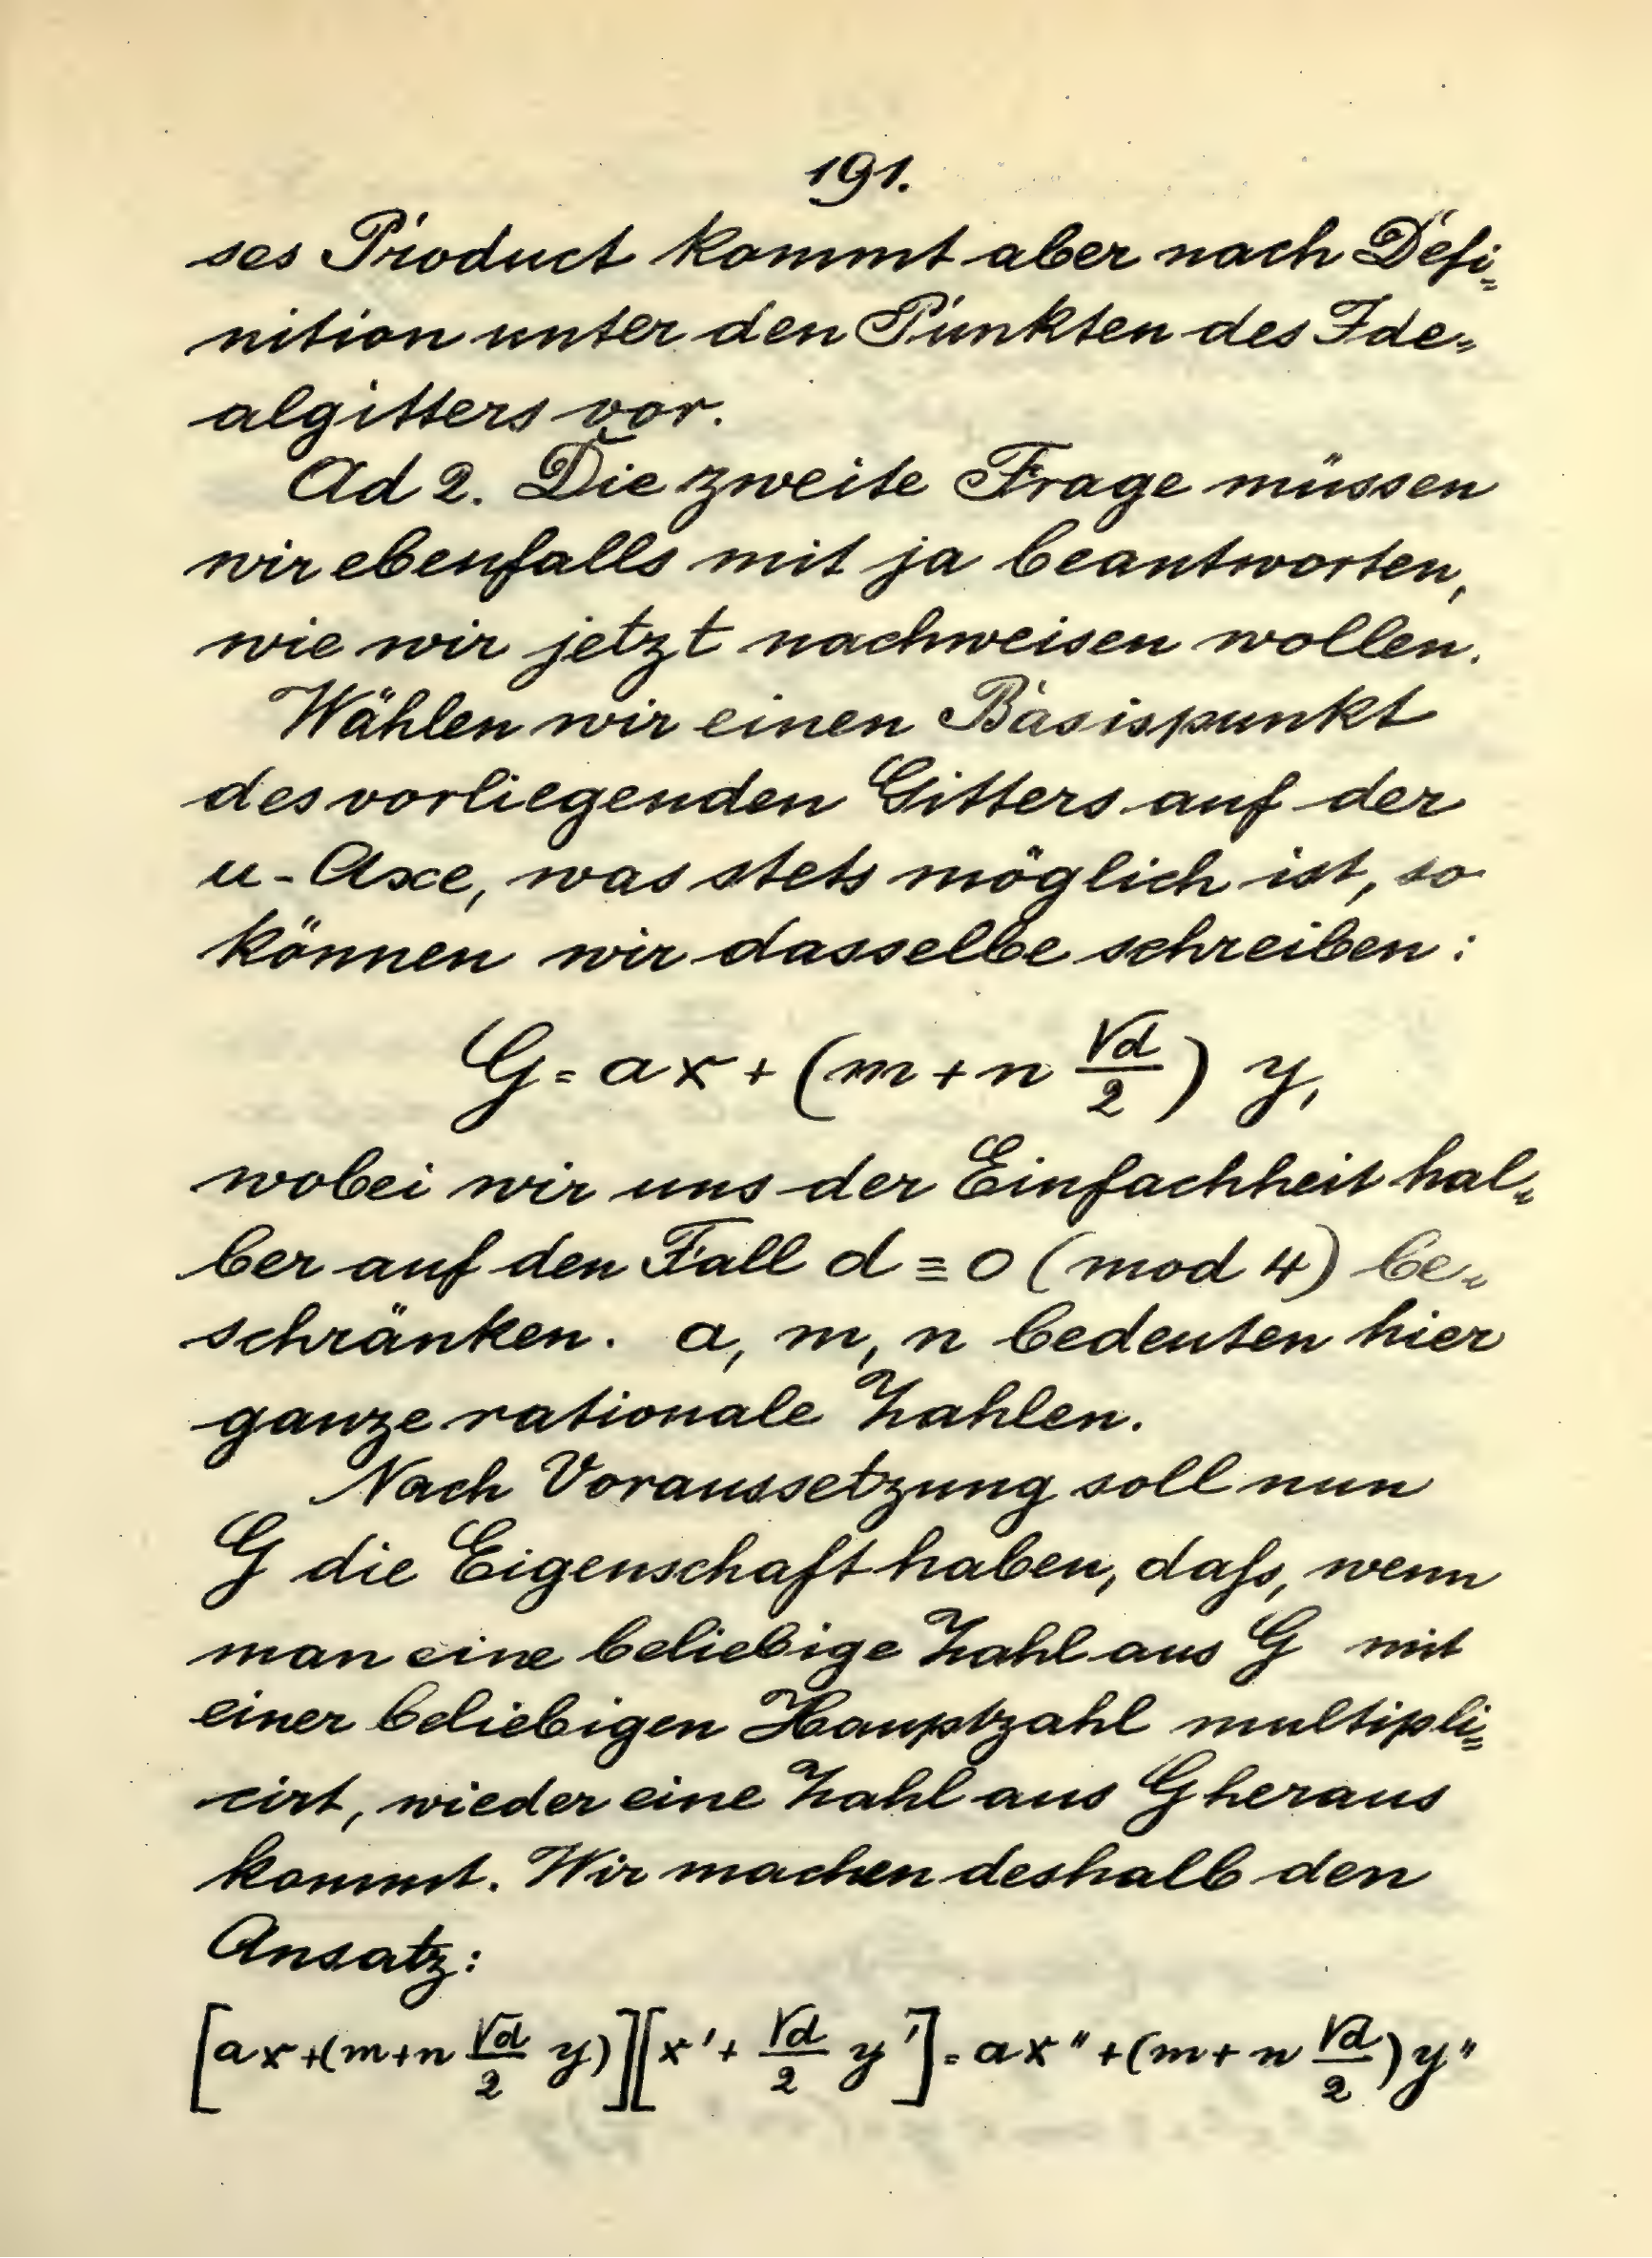 191.
ses Product kommt aber nach Defi=
nition unter den Punkten des Ide=
algitters vor.
Ad 2. Die zweite Frage müssen
wir ebenfalls mit ja beantworten,
wie wir jetzt nachweisen wollen.
Wählen wir einen Basispunkt
des vorliegenden Gitters auf der
u-Axe, was stets möglich ist, so
können wir dasselbe schreiben:
G = ax + (m + n √d/2) y,
wobei wir uns der Einfachheit hal=
ber auf den Fall d ≡ 0 (mod 4) be=
schränken. a, m, n bedeuten hier
ganze rationale Zahlen.
Nach Voraussetzung soll nun
G die Eigenschaft haben, daſs, wenn
man eine beliebige Zahl aus G mit
einer beliebigen Hauptzahl multipli=
cirt, wieder eine Zahl aus G heraus
kommt. Wir machen deshalb den
Ansatz:
[ax + (m + n √d/2 y)][x' + √d/2 y'] = ax'' + (m + n √d/2) y''